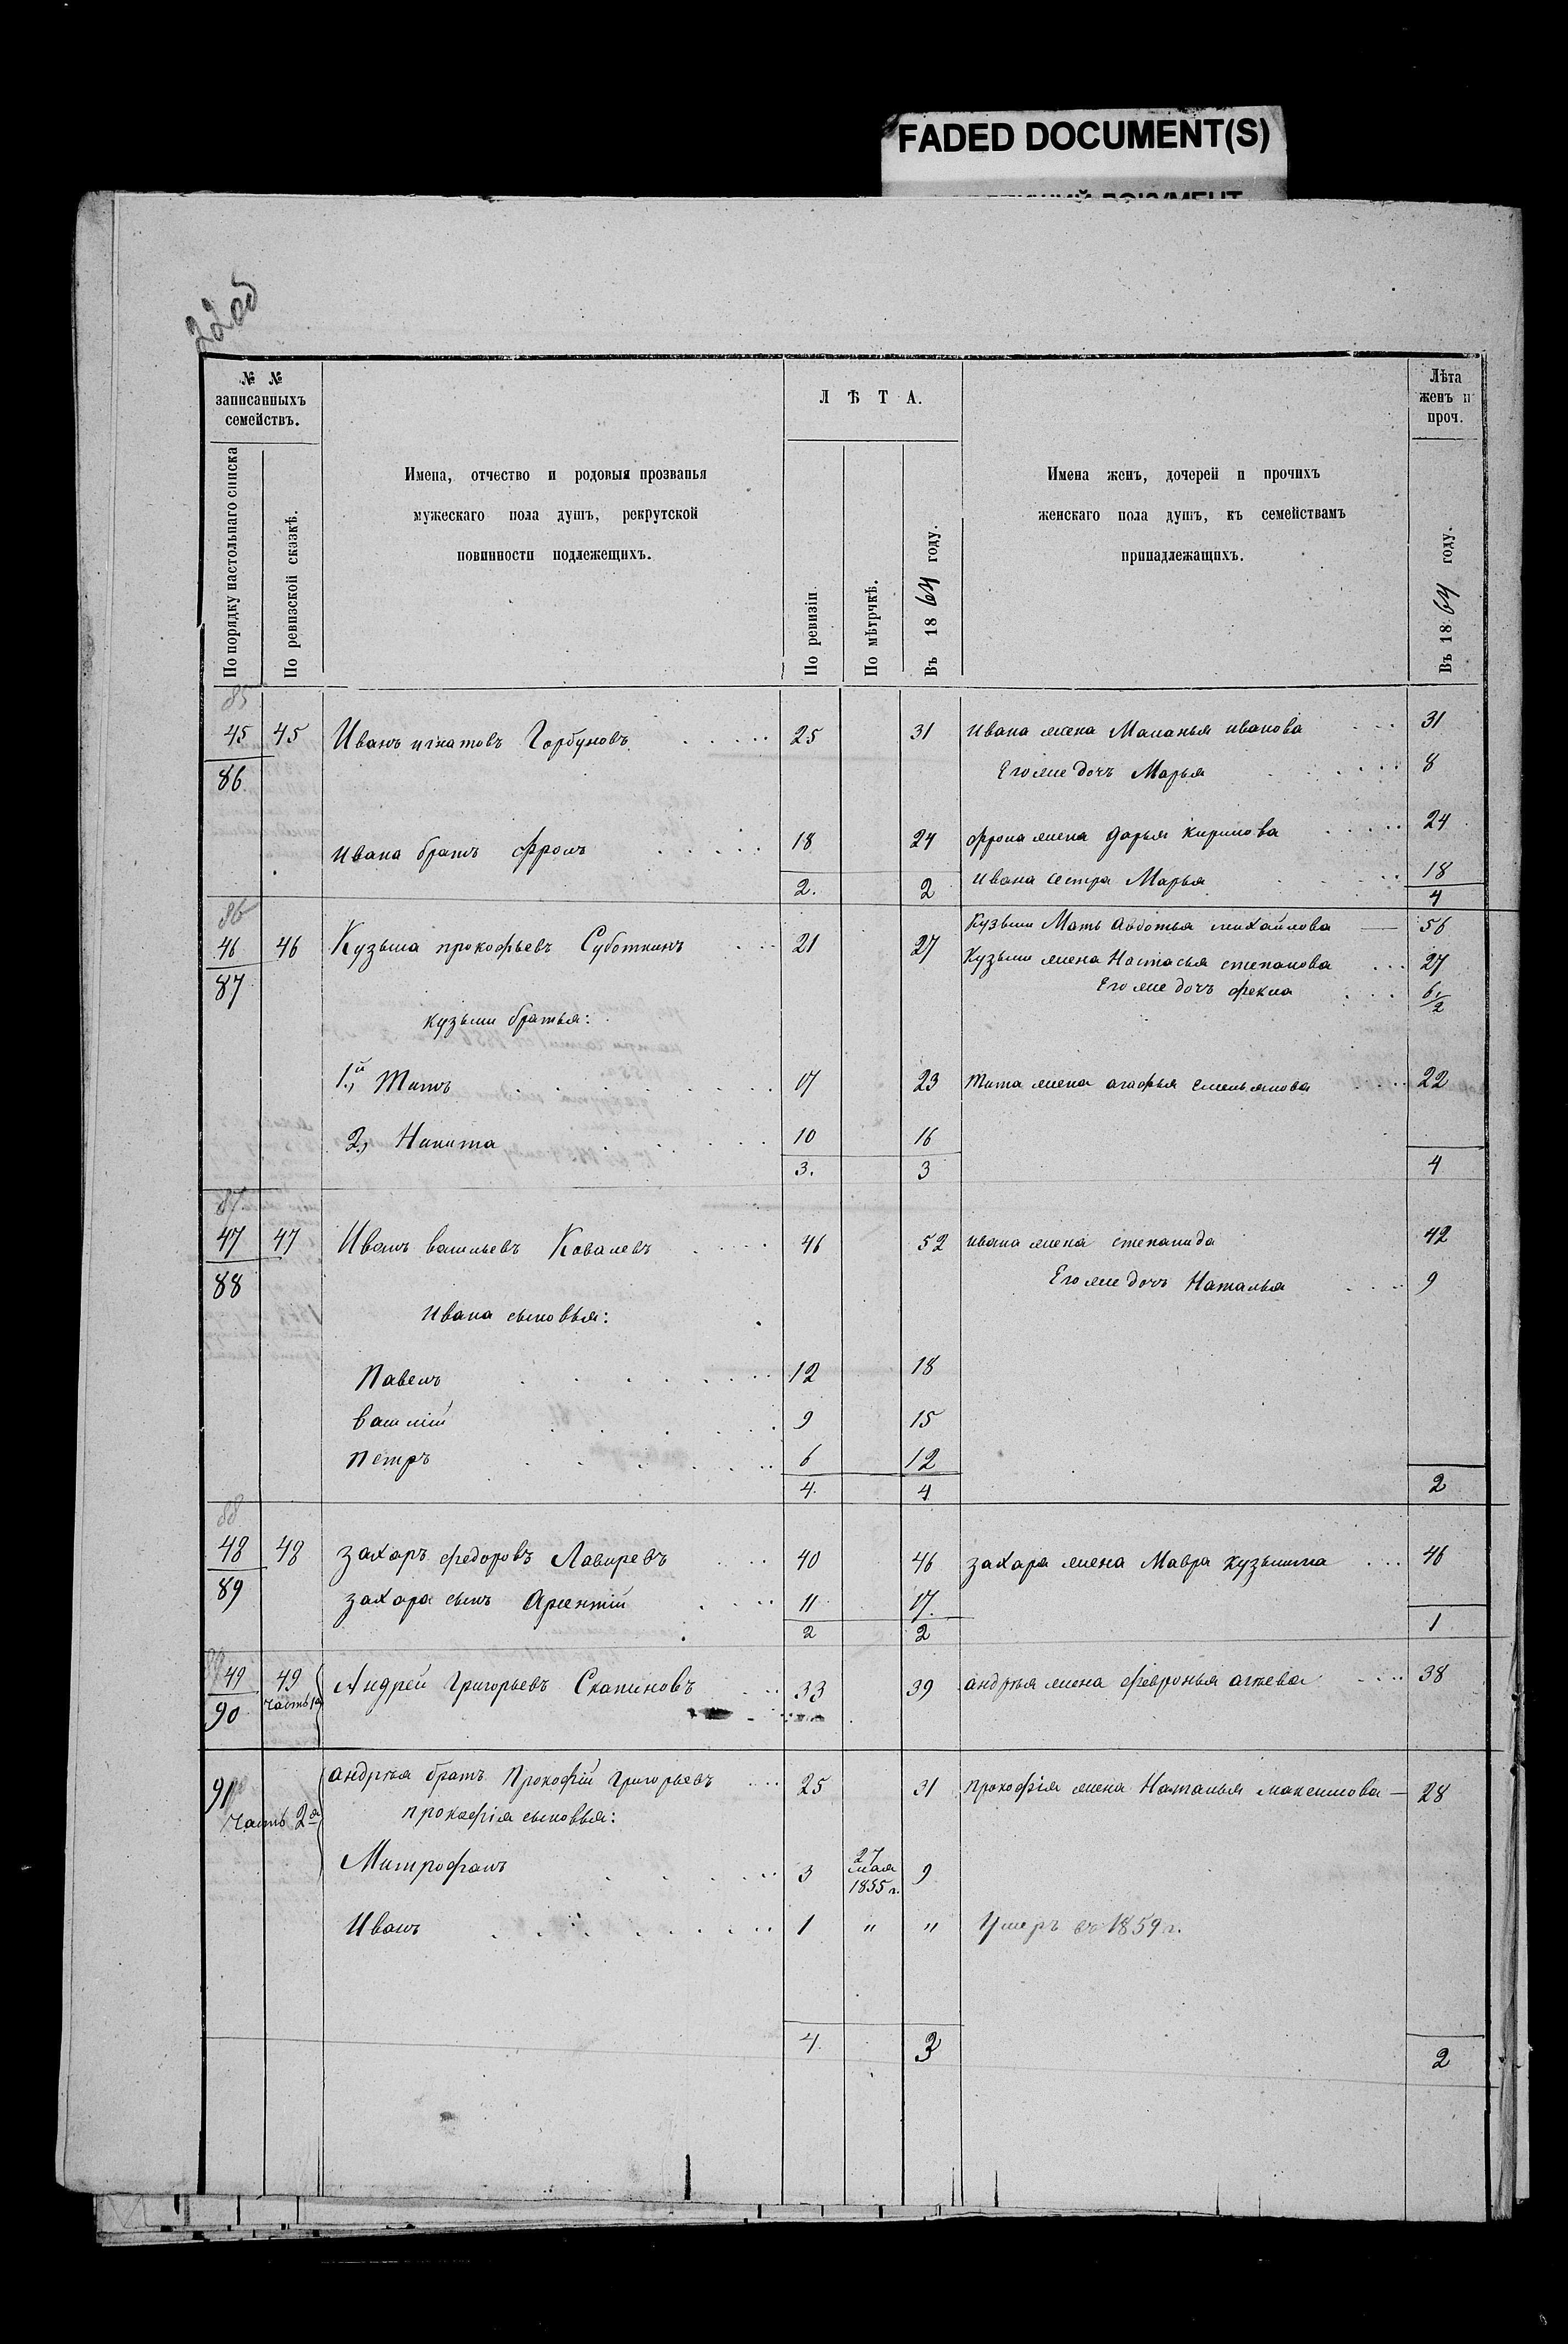 FADED DOCUMENT(S)
22об
№ № записанныхъ семействъ.
По порядку настольнаго списка
По ревизской сказкѣ.
Имена, отчество и родовыя прозванья
мужескаго пола душъ, рекрутской
повинности подлежещихъ.
ЛѢТА.
По ревизіи.
По мѣтрчкѣ.
Въ 1864 году.
Имена женъ, дочерей и прочихъ
женскаго пола душъ, къ семействамъ
принадлежащихъ.
Лѣта женъ и проч.
Въ 1864 году.
85
45 45 Иванъ игнатовъ Горбуновъ 25 31 ивана жена Маланья иванова 31
86 Его же дочь Марья 8
ивана братъ фролъ 18 24 фрола жена дарья кирилова 24
ивана сестра Марья 18
2. 2 4
86
Кузьмы Мать Авдотья михайлова 56
46 46 Кузьма прокофьевъ Суботкинъ 21 27 Кузьмы жена Настасья степанова 27
87 Его же дочь фекла 6 1/2
кузьмы братья:
1.й Титъ 17 23 тита жена агафья емельянова 22
2, Никита 10 16
3. 3 4
87
47 47 Иванъ васильевъ Ковалевъ 46 52 ивана жена степанида 42
88 Его же дочь Наталья 9
ивана сыновья:
Павелъ 12 18
василій 9 15
петръ 6 12
4. 4 2
88
48 48 захаръ федоровъ Лавыревъ 40 46 захара жена Мавра кузьмина 46
89 захара сынъ Арсентій 11 17.
2 2 1
49 49 Андрей Григорьевъ Скапиновъ 33 39 андрѣя жена февронья агѣева 38
90 часть 1я
91 андрѣя братъ прокофій григорьевъ 25 31 прокофія жена Наталья максимова — 28
часть 2я прокофія сыновья:
Митрофанъ 3 27 мая 1855 г. 9
Иванъ 1 " " Умеръ въ 1859 г.
4. 3 2